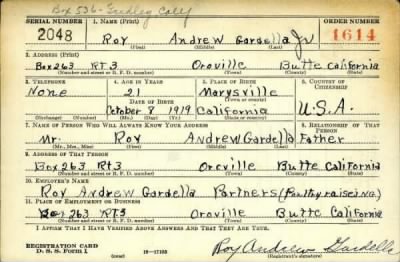 Box 536 - Gridley Calif
SERIAL NUMBER 1. NAME (Print) ORDER NUMBER
2048 Roy Andrew Gardella Jr 1614
(First) (Middle) (Last)
2. ADDRESS (Print)
Box 263 RT 3 Oroville Butte California
(Number and street or R. F. D. number) (Town) (County) (State)
3. TELEPHONE 4. AGE IN YEARS 5. PLACE OF BIRTH 6. COUNTRY OF CITIZENSHIP
None 21 Marysville
DATE OF BIRTH (Town or county)
October 8 1919 California U.S.A.
(Exchange) (No.) (Mo.) (Day) (Yr.) (State or country)
7. NAME OF PERSON WHO WILL ALWAYS KNOW YOUR ADDRESS 8. RELATIONSHIP OF THAT PERSON
Mr. Roy Andrew Gardella Father
(Mr., Mrs., Miss) (First) (Middle) (Last)
9. ADDRESS OF THAT PERSON
Box 263 Rt 3 Oroville Butte California
(Number and street or R. F. D. number) (Town) (County) (State)
10. EMPLOYER'S NAME
Roy Andrew Gardella Partners (Poultry raising)
11. PLACE OF EMPLOYMENT OR BUSINESS
Box 263 RT 3 Oroville Butte California
(Number and street or R. F. D. number) (Town) (County) (State)
I AFFIRM THAT I HAVE VERIFIED ABOVE ANSWERS AND THAT THEY ARE TRUE.
REGISTRATION CARD
D. S. S. FORM 1 (over) 16-17105 Roy Andrew Gardella
(Registrant's signature)